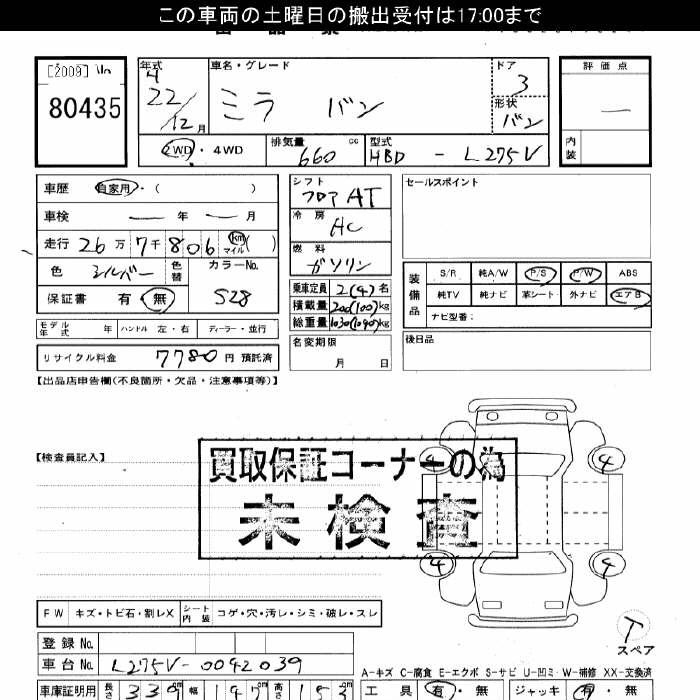 この車両の土曜日の搬出受付は17:00まで
[2009]
80435
年式 車名・グレード ドア 評価点
22/12月 ミラ バン 3 —
形状 バン
2WD・4WD 排気量 660 cc 型式 HBD - L275V 内装
車歴 自家用・( ) シフト フロア AT セールスポイント
車検 — 年 — 月 冷房 AC
走行 26万7千806 km マイル ( ) 燃料 ガソリン
色 シルバー 色替 カラーNo. S28
保証書 有・無
乗車定員 2(4)名
積載量 200(100)kg
総重量 1030(1090)kg
装備品 S/R 純A/W P/S P/W ABS
純TV 純ナビ 革シート 外ナビ エアB
ナビ型番:
モデル年式 年 ハンドル 左・右 ディーラー・並行 名変期限 月 日 後日品
リサイクル料金 7780 円 預託済
【出品店申告欄(不良箇所・欠品・注意事項等)】
【検査員記入】
買取保証コーナーの為
未検査
4 4
4 4
FW キズ・トビ石・割レX シート内装 コゲ・穴・汚レ・シミ・破レ・スレ
T
スペア
登録No.
車台No. L275V-0042039
A-キズ C-腐食 E-エクボ S-サビ U-凹ミ W-補修 XX-交換済
車庫証明用 長さ 339cm 幅 147cm 高さ 153cm 工具 有・無 ジャッキ 有・無